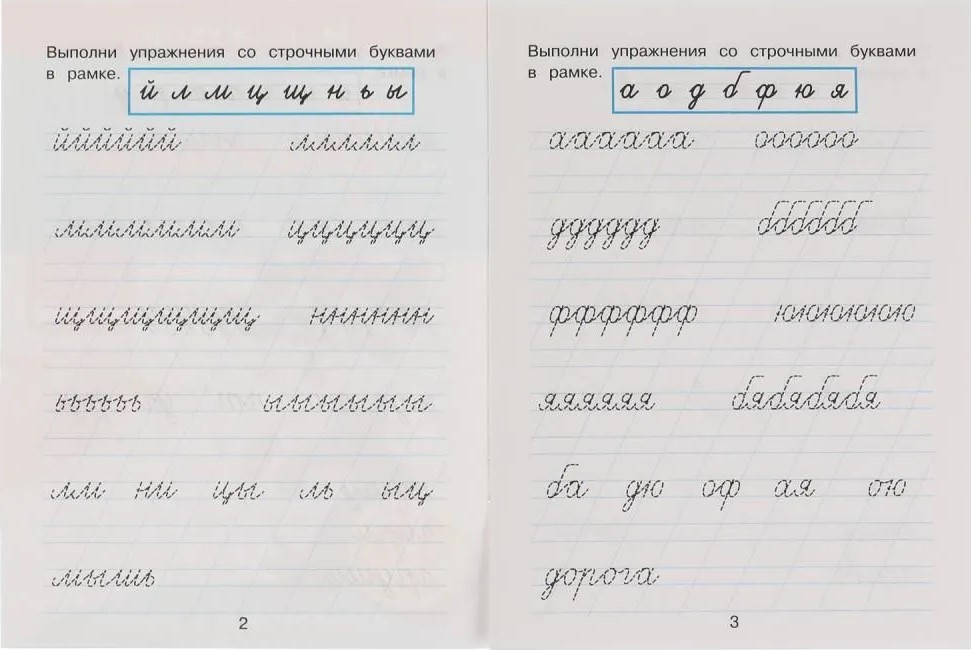 Выполни упражнения со строчными буквами
в рамке.
й л м ц щ н ь ы
йййййй лллллл
мммммм цццццц
щщщщщщ нннннн
ьььььь ыыыыыы
лм ни цы ль ыц
мышь
2
Выполни упражнения со строчными буквами
в рамке.
а о д б ф ю я
аааааа оооооо
дддддд бббббб
фффффф юююююю
яяяяяя бябябябя
ба дю оф ая ою
дорога
3